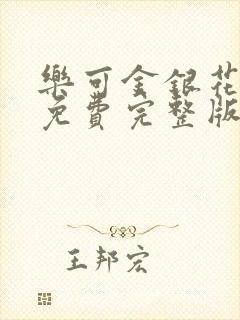 樂可金銀花
免費完整版
王邦宏